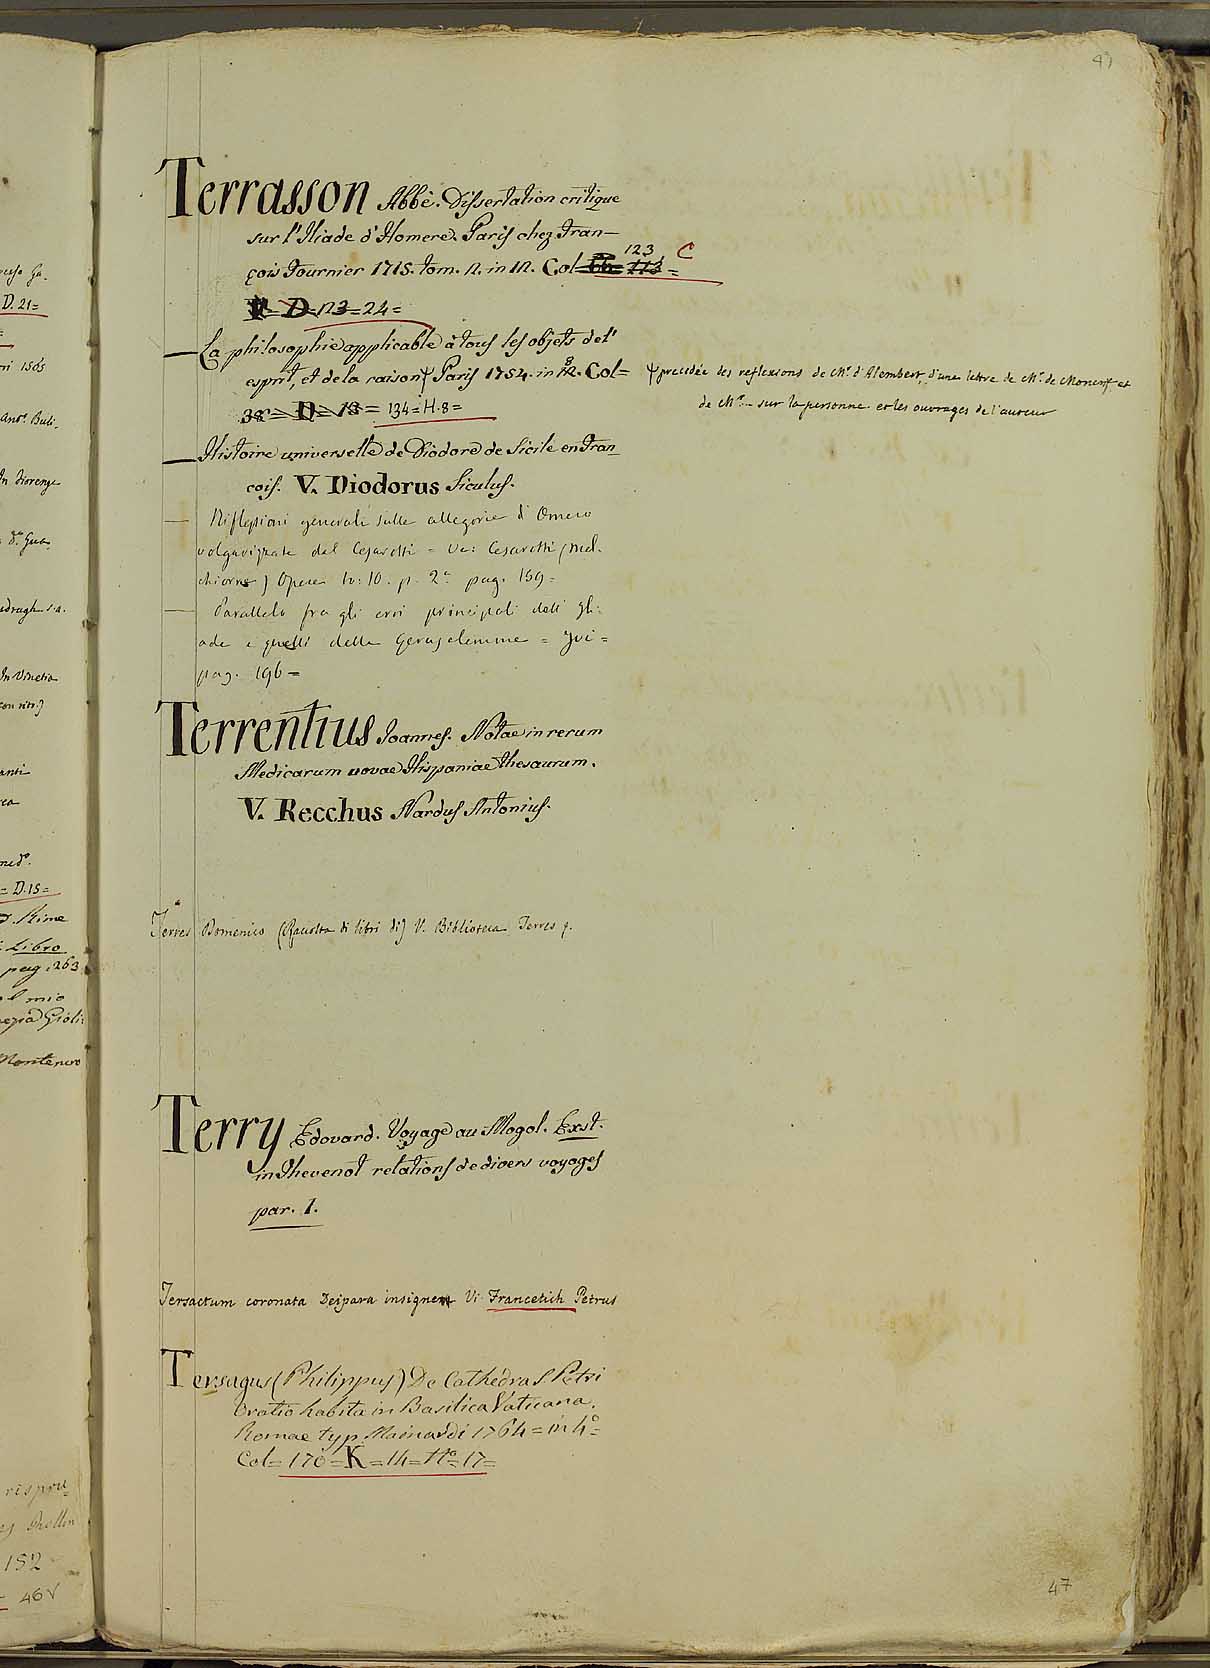 47
Terrasson Abbè. Dissertation critique
sur l'Iliade d'Homere. Paris chez Fran-
çois Fournier 1715. tom. 2. in 12. Col= 123 C
D=123=24=
La philosophie applicable à tous les objets de l'
esprit, et de la raison Paris 1754. in 8 Col=
38=D=13= 134=H.8=
precedée des reflexions de Mr. d'Alembert, d'une lettre de Mr. de Moncrif et
de Mr. - sur la personne et les ouvrages de l'auteur
Histoire universelle de Diodore de Sicile en Fran-
cois. V. Diodorus Siculus.
Riflessioni generali sulle allegorie d'Omero
volgarizzate dal Cesarotti = Ve: Cesarotti (Mel-
chiorre) Opere to: 10. p. 2a pag. 159=
Parallelo fra gli eroi principali dell' Ili-
ade e quelli della Gerusalemme = Ivi =
pag. 196=
Terrentius Joannes. Notae in rerum
Medicarum novae Hispaniae thesaurum.
V. Recchus Nardus Antonius.
Terres Domenico (Raccolta di libri di) V. Biblioteca Terres
Terry Edouard. Voyage au Mogol. Exst.
in Thevenot relations de divers voyages
par. 1.
Tersactum coronata Deipara insignem Vi Francetich Petrus
Tersagus (Philippus) De Cathedra S Petri
Oratio habita in Basilica Vaticana.
Romae typ Mainardi 1764=in 4°=
Col=170=K=14=No=17=
47
D. 21=
1565
Anto. Buli-
In Fiorenza
In Vinetia
con rit.)
= D.15=
Rime
Libro
pag. 263
el mio
Gioli:
Montenero
152
46v